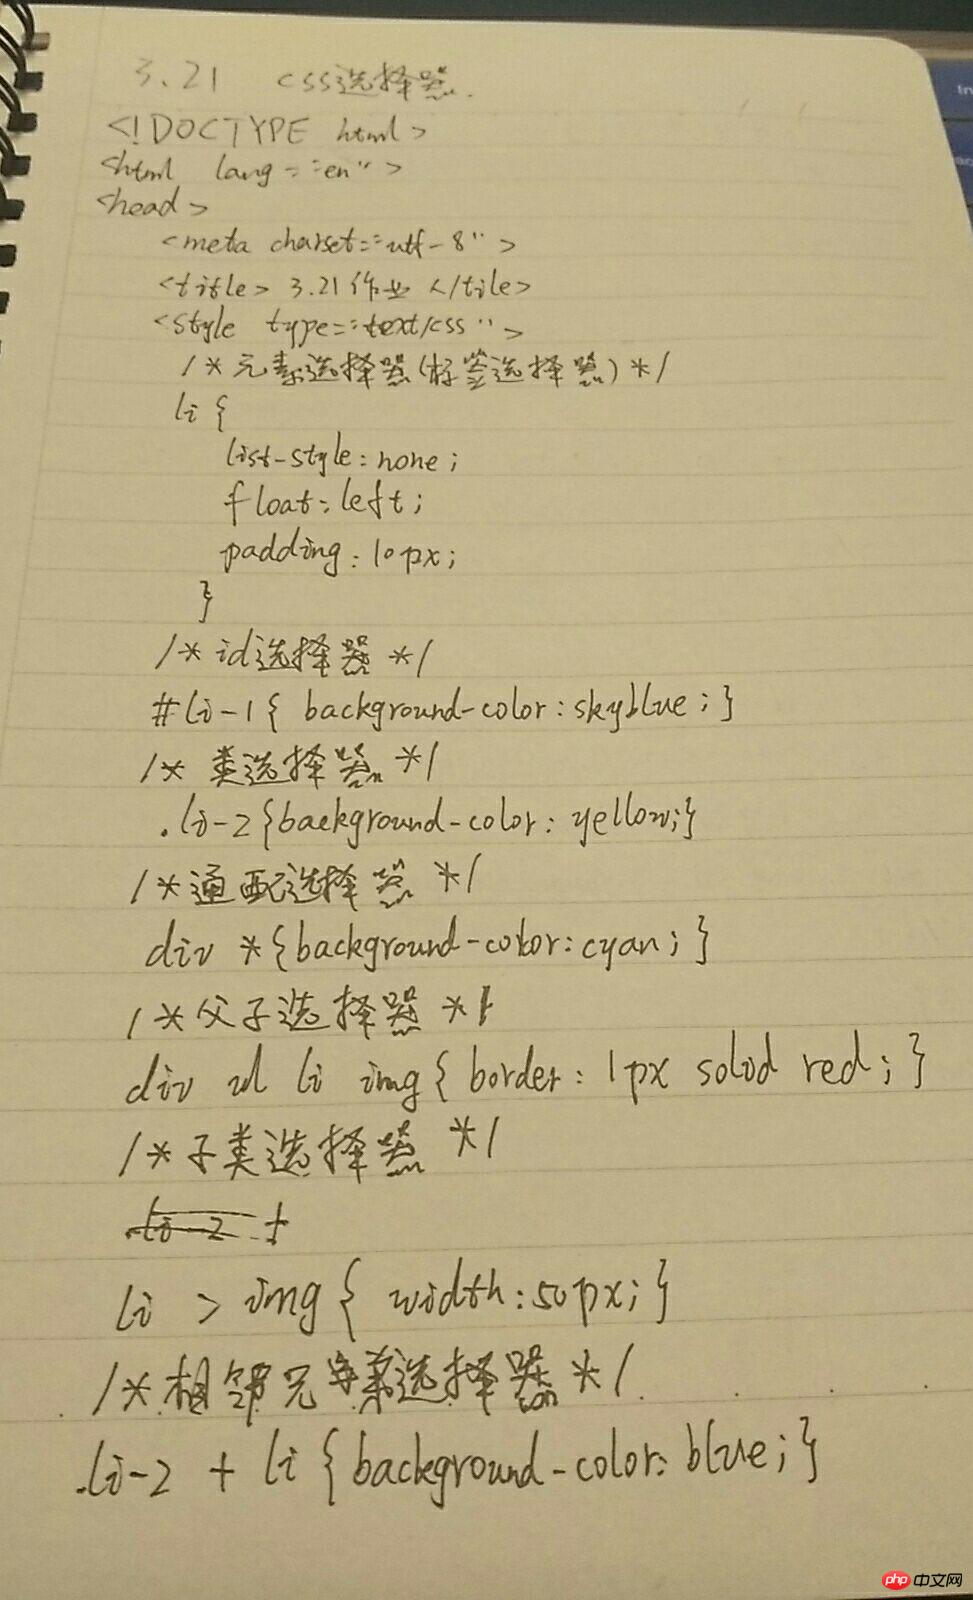 3.21 css选择器.
<!DOCTYPE html>
<html lang="en">
<head>
<meta charset="utf-8">
<title> 3.21作业 </tile>
<style type="text/css">
/*元素选择器(标签选择器)*/
li {
list-style:none;
float:left;
padding:10px;
}
/*id选择器 */
#li-1{ background-color:skyblue;}
/* 类选择器 */
.li-2{background-color: yellow;}
/*通配选择器 */
div *{background-color:cyan;}
/*父子选择器 */
div ul li img{ border: 1px solid red;}
/*子类选择器 */
li-2 +
li > img{ width:50px;}
/*相邻元素选择器*/
.li-2 + li {background-color:blue;}
In
php 中文网